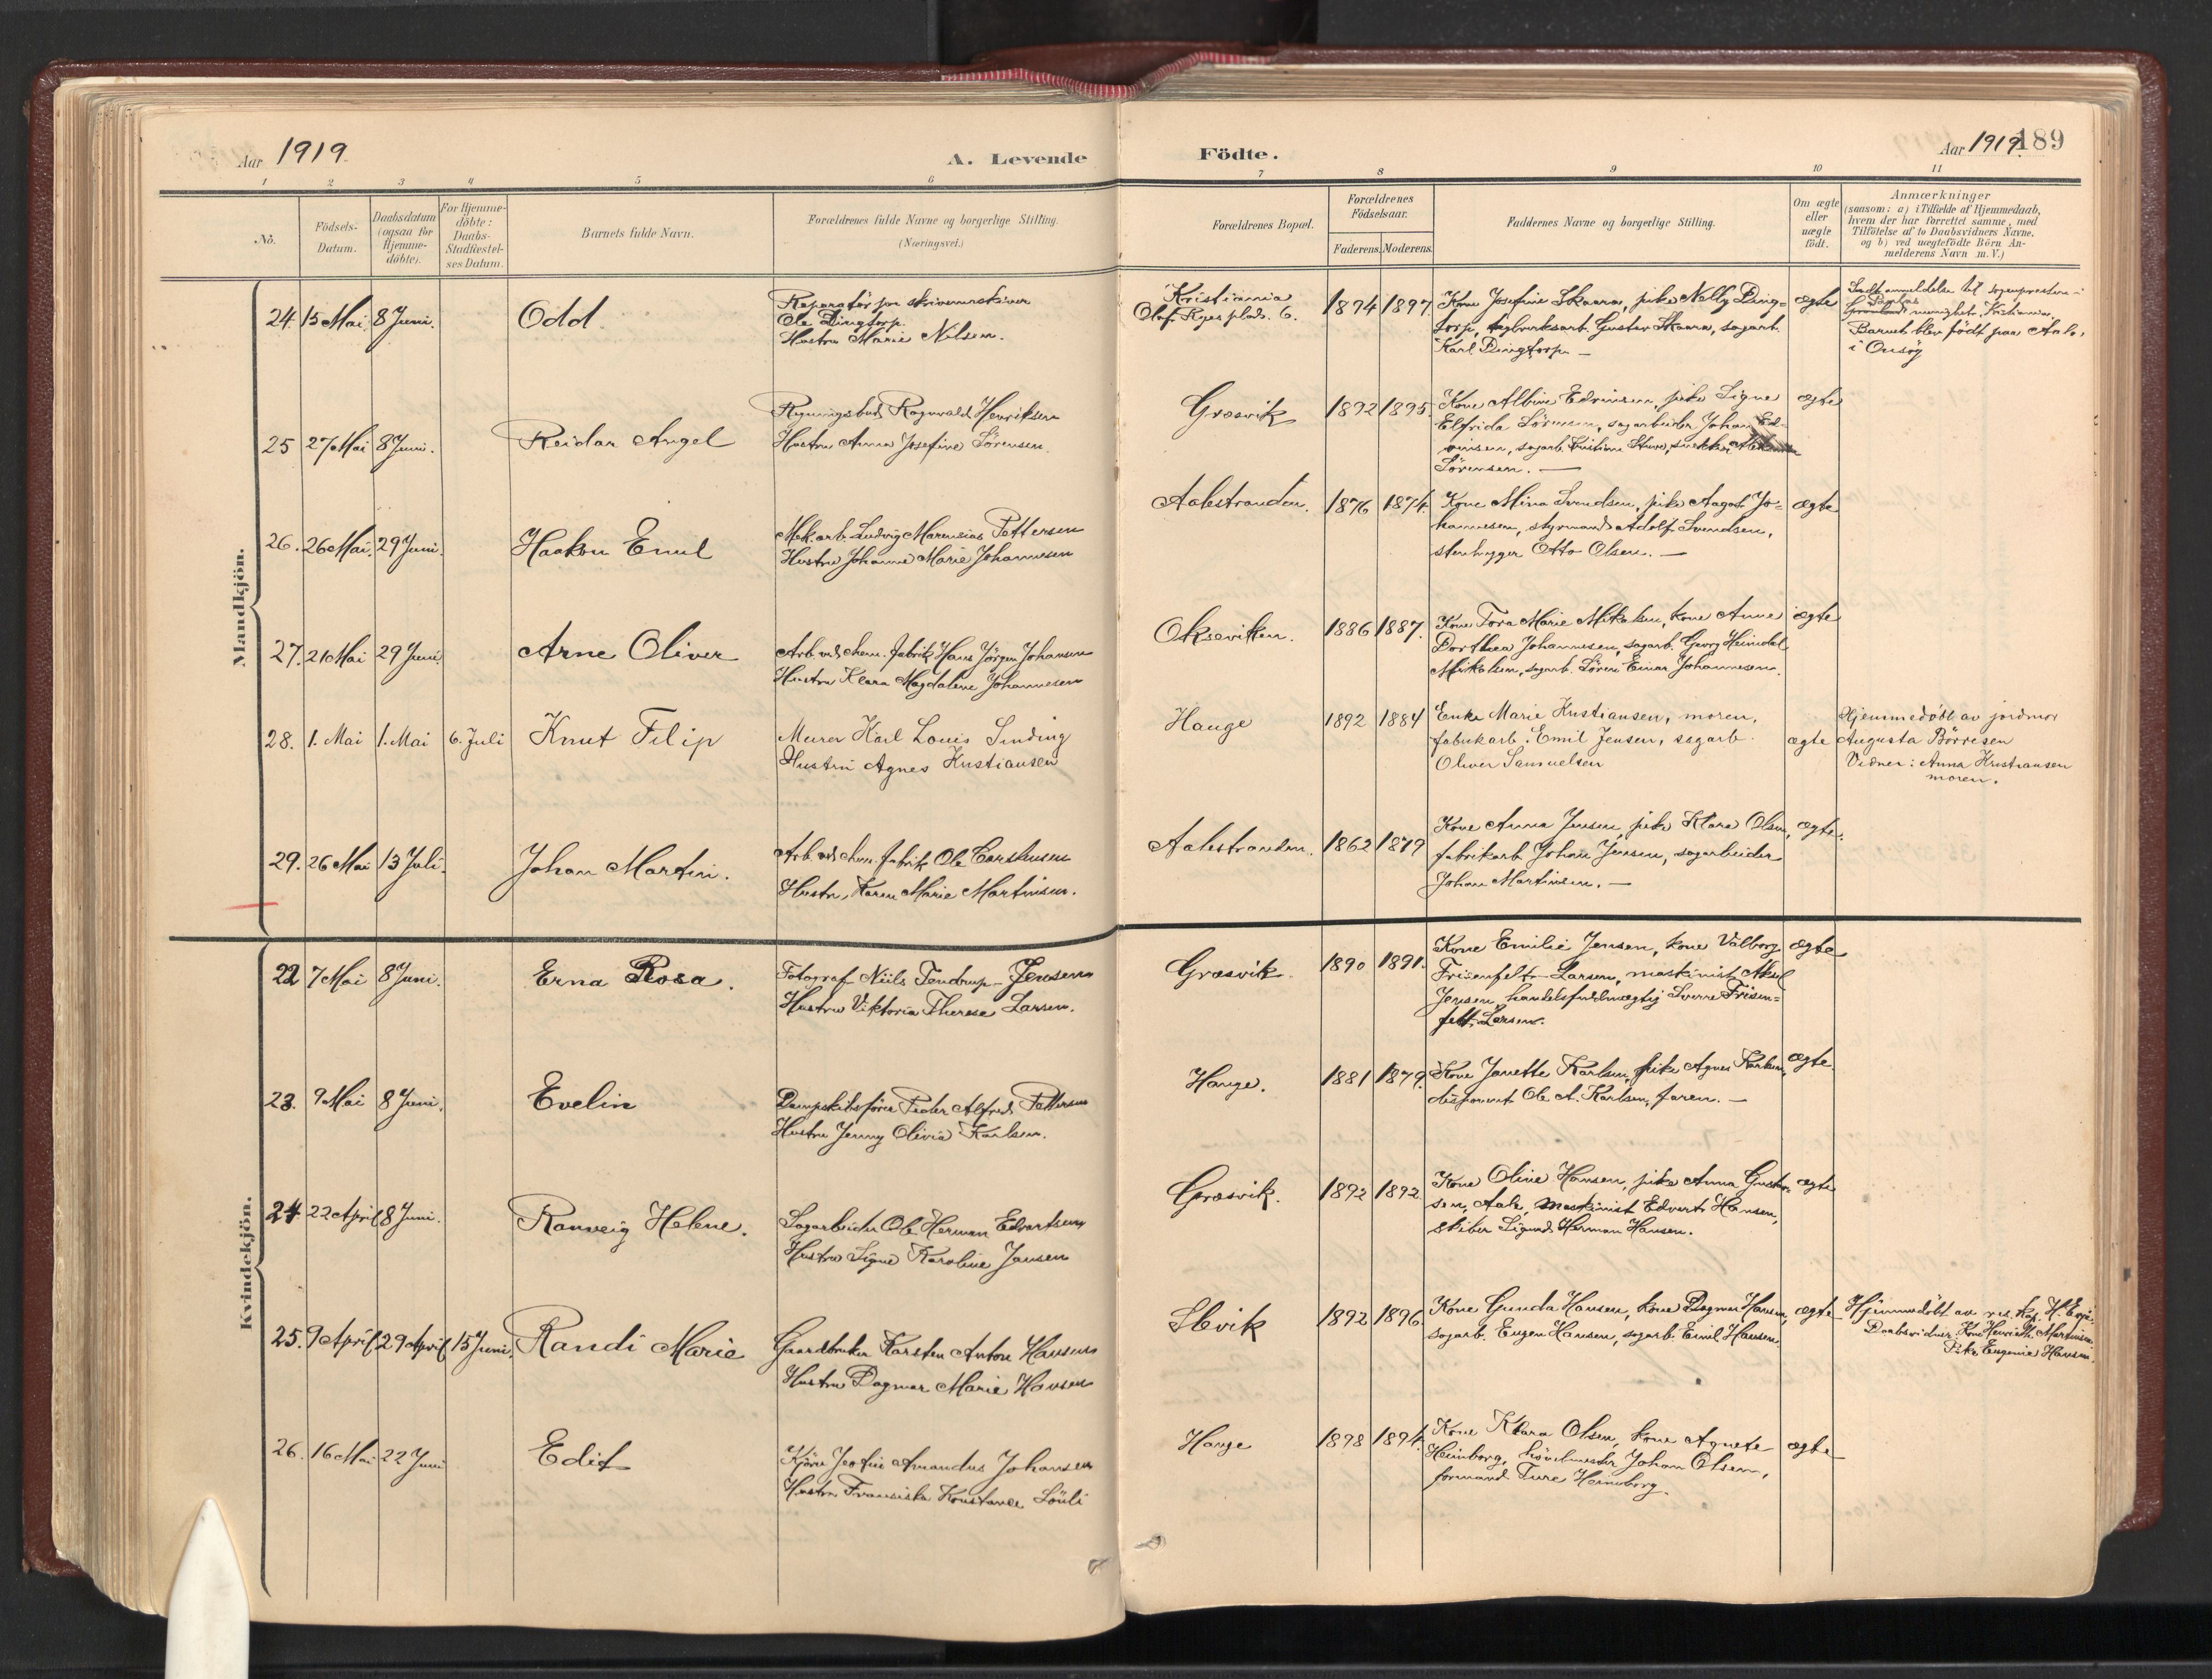 Aar 1919.
A. Levende
Födte.
Aar 1919.
189
1 2 3 4 5 6 7 8 9 10 11
No.
Födsels-
Datum.
Daabsdatum
(ogsaa for
Hjemme-
döbte).
For Hjemme-
döbte:
Daabs-
Stadfæstel-
ses Datum.
Barnets fulde Navn.
Forældrenes fulde Navne og borgerlige Stilling.
(Næringsvei.)
Forældrenes Bopæl.
Forældrenes
Födselsaar.
Faderens. Moderens.
Faddernes Navne og borgerlige Stilling.
Om ægte
eller
uægte
födt.
Anmærkninger
(saasom: a) i Tilfælde af Hjemmedaab,
hvem der har forrettet samme, med
Tilföielse af to Daabsvidners Navne,
og b) ved uægtefödte Börn An-
melderens Navn m. V.)
Mandkjön.
24. 15 Mai. 8 Juni. Odd
Reparatör for skrivemaskiner
Ole Dingtorp.
Hustru Marie Nilsen.
Kristiania
Olaf Ryes plads 6.
1894 1897
Kone Josefine Skaara, pike Nelly Ding-
torp, sagbruksarb. Gustav Skaara, sagarb.
Karl Dingtorp. —
ægte
menighet, Kristiania.
Barnet blev födt paa Aale,
i Onsöy
25 27 Mai 8 Juni. Reidar Angel
Rognvald Henriksen
Hustru Anna Josefine Sörensen.
Græsvik 1892 1895.
Kone Albine Edvinsen, pike Signe
Elfrida Sörensen, sagarbeider Johan Ed-
vinsen, sagarb. Kristian
Sörensen. —
ægte
26. 26 Mai. 29 Juni. Haakon Emil
Mek. arb. Ludvig Marensius Pettersen
Hustru Johanne Marie Johannesen
Aalestranden. 1876 1874.
Kone Mina Svendsen, pike Aagot Jo-
hannesen, styrmand Adolf Svendsen,
stenhugger Otto Olsen. —
ægte
27. 21 Mai 29 Juni. Arne Oliver
Arb. ved chem. fabrik Hans Jörgen Johansen
Hustru Klara Magdalene Johannesen
Okseviken. 1886 1887.
Kone Tora Marie Mikalsen, kone Anne
Dorthea Johannesen, sagarb. Georg Heimdal
Mikalsen, sagarb. Sören Einar Johannesen.
ægte
28. 1. Mai 1. Mai 6. Juli Knut Filip
Murer Karl Louis Sinding
Hustru Agnes Kristiansen
Hauge 1892 1884
Enke Marie Kristiansen, moren,
fabrikarb. Emil Jensen, sagarb.
Oliver Samuelsen
ægte
Hjemmedöbt av jordmor
Augusta Börresen
Vidner: Anna Kristiansen
moren.
29. 26 Mai 13 Juli. Johan Martin.
Arb. ved chem. fabrik Ole Carstensen
Hustru, Karen Marie Martinsen.
Aalestranden. 1862 1879
Kone Anna Jensen, pike Klara Olsen,
fabrikarb. Johan Jensen, sagarbeider
Johan Martinsen. —
ægte.
Kvindekjön.
22 7 Mai 8 Juni. Erna Rosa.
Fotograf Niils Tendrup-Jensen
Hustru Viktoria Therese Larsen.
Græsvik. 1890 1891.
Kone Emilie Jensen, kone Valborg
Frisenfelt-Larsen, maskinist Aksel
Jensen, handelsfuldmægtig Sverre Frisen-
felt-Larsen.
ægte
23. 9 Mai 8 Juni. Evelin
Dampskibsförer Peder Alfred Pettersen
Hustru Jenny Olivia Karlsen.
Hauge. 1881 1879.
Kone Janette Karlsen, pike Agnes Karlsen,
disponent Ole A. Karlsen, faren. —
ægte.
24 22 April 8 Juni. Ranveig Helene.
Sagarbeider Ole Herman Edvartsen
Hustru Signe Karoline Jansen
Græsvik. 1892 1892.
Kone Oline Hansen, pike Anna Gustav-
sen, Aale, maskinist Edvart Hansen,
skiber Sigurd Herman Hansen.
ægte
25. 9 April 29 April 15 Juni. Randi Marie
Gaardbruker Karsten Anton Hansen
Hustru Dagmar Marie Hansen
Slevik 1892 1896
Kone Gunda Hansen, kone Dagmar Hansen,
sagarb. Eugen Hansen, sagarb. Emil Hansen.
ægte
Hjemmedöbt av res. kap. H.
Daabsvidner: Kone Henriette Martinsen
Pike Eugenie Hansen.
26. 16 Mai 22 Juni Edit
Amandus Johansen
Hustru Fransiska Konstance Söuli
Hauge 1898 1894.
Kone Klara Olsen, kone Agnete
Heinborg, Johan Olsen,
formand Ture Heinborg.
ægte